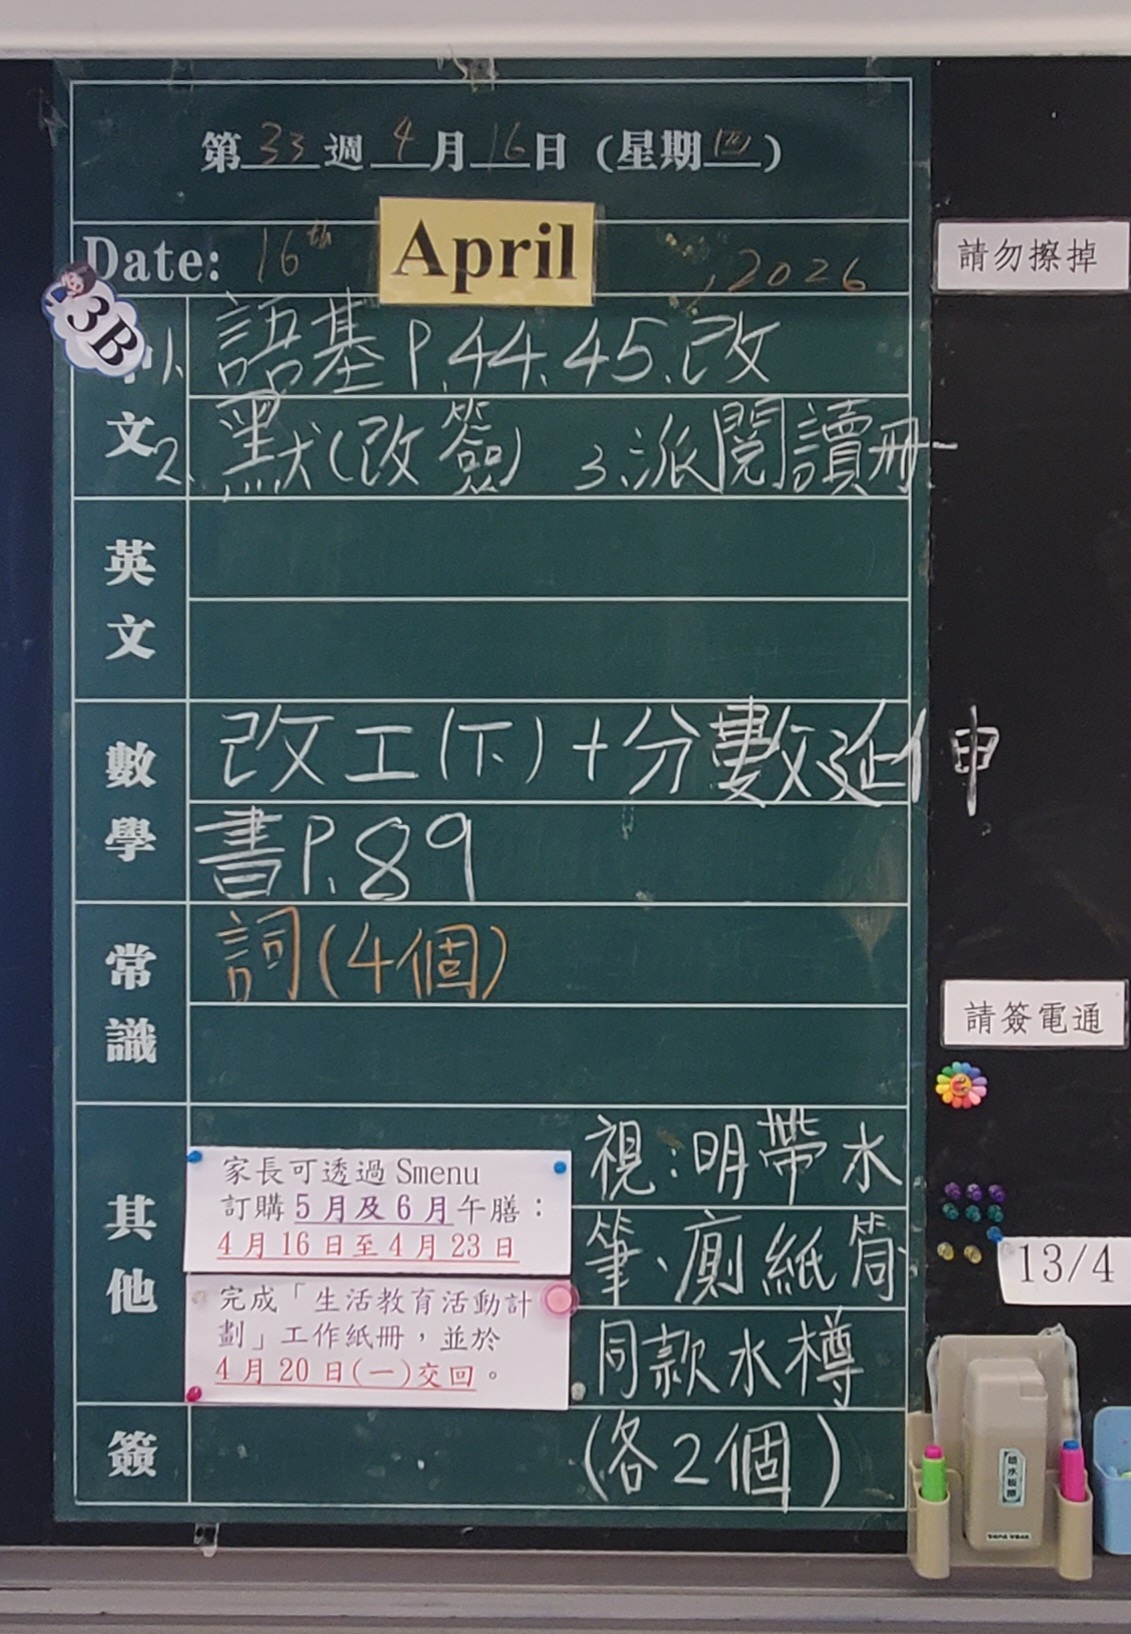 第33週4月16日(星期四)
Date: 16th April, 2026
請勿擦掉
3B
1. 語基P.44、45、改
文 2. 默(改簽) 3.派閱讀冊
英文
數學
改工(下)+分數延伸
書P.89
常識
詞(4個)
請簽電通
其他
家長可透過 Smenu
訂購5月及6月午膳：
4月16日至4月23日
完成「生活教育活動計
劃」工作紙冊，並於
4月20日(一)交回。
視：明帶水
筆、廁紙筒、
同款水樽
(各2個)
13/4
簽